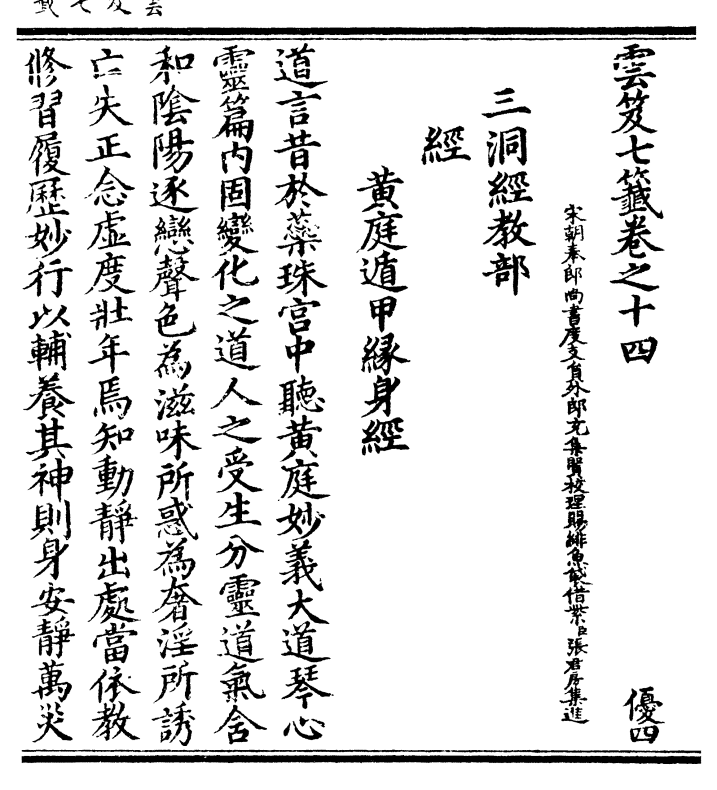 雲笈七籤卷之十四 優四
宋朝奉郎尚書度支員外郎充集賢校理賜緋魚袋借紫臣張君房集進
三洞經教部
經
黃庭遁甲緣身經
道言昔於蘂珠宮中聽黃庭妙義大道琴心
靈篇內固變化之道人之受生分靈道氣含
和陰陽逐戀聲色為滋味所惑為奢淫所誘
亡失正念虛度壯年焉知動靜出處當依教
修習履歷妙行以輔養其神則身安靜萬災